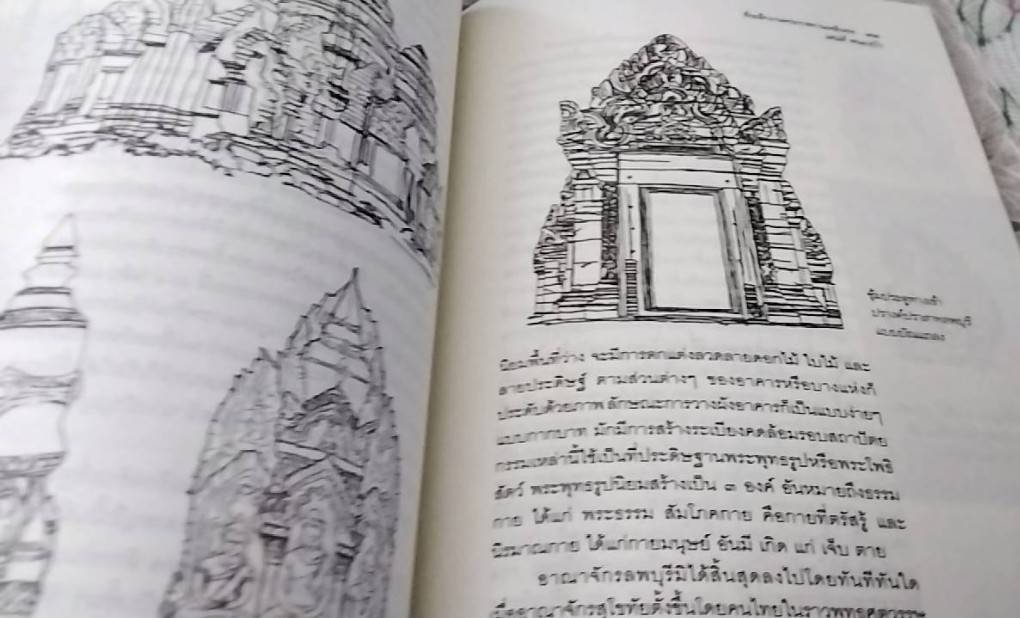 ซุ้มประตูทางเข้า
ปรางค์ปราสาทลพบุรี
แบบบันแถลง
นิยมพื้นที่ว่าง จะมีการตกแต่งลวดลายดอกไม้ ใบไม้ และ
ลายประดิษฐ์ ตามส่วนต่างๆ ของอาคารหรือบางแห่งก็
ประดับด้วยภาพ ลักษณะการวางผังอาคารก็เป็นแบบง่ายๆ
แบบกากบาท มักมีการสร้างระเบียงคดล้อมรอบสถาปัตย
กรรมเหล่านี้ใช้เป็นที่ประดิษฐานพระพุทธรูปหรือพระโพธิ
สัตว์ พระพุทธรูปนิยมสร้างเป็น ๓ องค์ อันหมายถึงธรรม
กาย ได้แก่ พระธรรม สัมโภคกาย คือกายที่ตรัสรู้ และ
นิรมาณกาย ได้แก่กายมนุษย์ อันมี เกิด แก่ เจ็บ ตาย
อาณาจักรลพบุรีมิได้สิ้นสุดลงไปโดยทันทีทันใด
เมื่ออาณาจักรสุโขทัยตั้งขึ้นโดยคนไทยในราวพุทธศตวรรษ